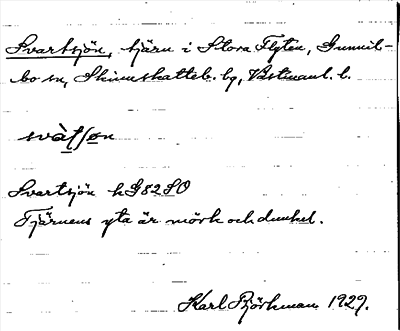 Svartsjön, tjärn i Stora Flyten, Gunnil-
bo sn, Skinnskatteb. hg, Västmanl. l.
svàtʃøn
Svartsjön hG82SO
Tjärnens yta är mörk och dunkel.
Karl Björkman 1929.